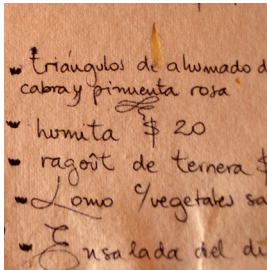 triángulos de ahumado d
cabra y pimienta rosa
humita $ 20
ragoût de ternera $
Lomo c/vegetales sa
Ensalada del di